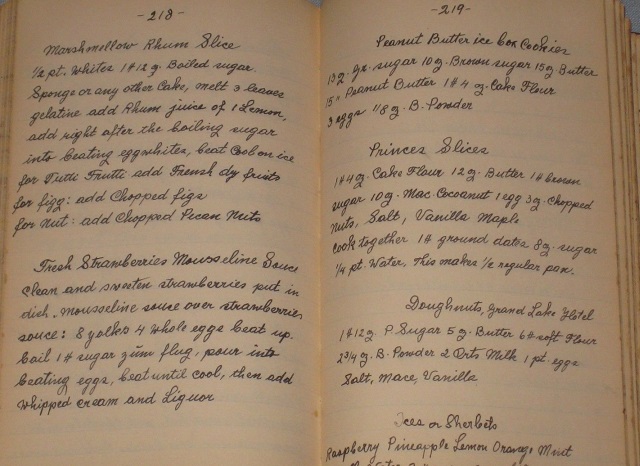 -218-
Marshmellow Rhum Slice
1/2 pt. Whites 1# 12 g Boiled sugar.
Sponge or any other Cake, melt 3 leaves
gelatine add Rhum juice of 1 Lemon,
add right after the boiling sugar
into beating eggwhites, beat Cool on ice
for Tutti Frutti add French dy fruits
for figg: add Chopped figs
for Nut: add Chopped Pecan Nuts
Fresh Strawberries Mousseline Souce
Clean and sweeten strawberries put in
dish. Mousseline souce over strawberries
souce: 8 yolks 4 whole eggs beat up.
boil 1# sugar zum flug, pour into
beating eggs, beat until cool, then add
whipped cream and Liquor
-219-
Peanut Butter ice box Cookies
gr. sugar 10 g. Brown sugar 15 g Butter
15" Peanut Butter 1# 4 g. Cake Flour
3 eggs 1/8 g. B. Powder
Princes Slices
1# 4 g. Cake Flour 12 g. Butter 1# brown
sugar 10 g. Mac. Cocoanut 1 egg 3 g. Chopped
Nuts, Salt, Vanilla Maple
Cook together 1# ground dates 8 g. sugar
1/4 pt. Water, This makes 1/2 regular pan.
Doughnuts, Grand Lake Hotel
1# 12 g. P. Sugar 5 g. Butter 6# soft Flour
2 3/4 g. B. Powder 2 Qrts Milk 1 pt. eggs
Salt, Mace, Vanilla
Ices or Sherbets
Raspberry Pineapple Lemon Orange Mint